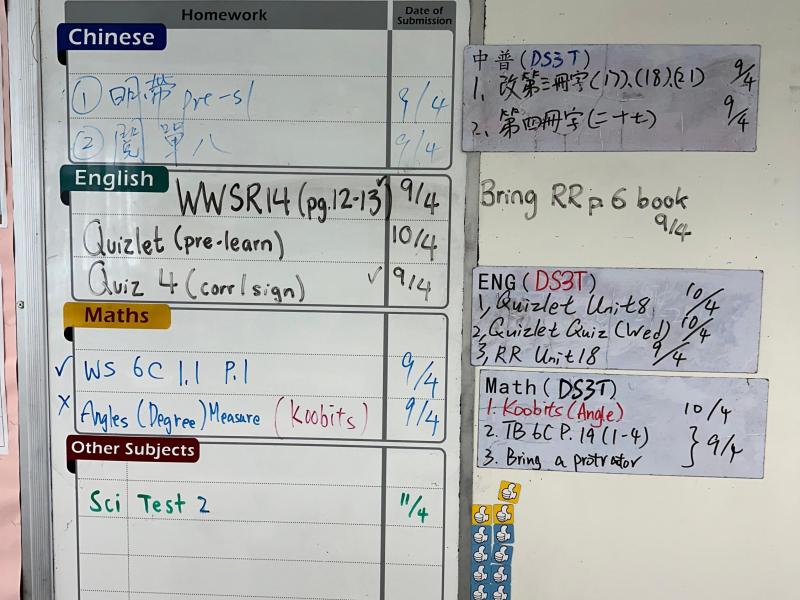 Homework
Date of Submission
Chinese
① 明帶 pre-s1 9/4
② 閱單八 9/4
English
WWSR14 (pg.12-13) 9/4
Quizlet (pre-learn) 10/4
Quiz 4 (corr/sign) ✓ 9/4
Maths
✓ WS 6C 1.1 P.1 9/4
X Angles (Degree) Measure (Koobits) 9/4
Other Subjects
Sci Test 2 11/4
中普(DS3T)
1. 改第三冊字(17).(18).(21) 9/4
2. 第四冊字(二十七) 9/4
Bring RR p.6 book
9/4
ENG (DS3T)
1, Quizlet Unit 8 10/4
2, Quizlet Quiz (Wed) 10/4
3, RR Unit 18 9/4
Math (DS3T)
1. Koobits (Angle) 10/4
2. TB 6C P.19 (1-4) } 9/4
3. Bring a protrator